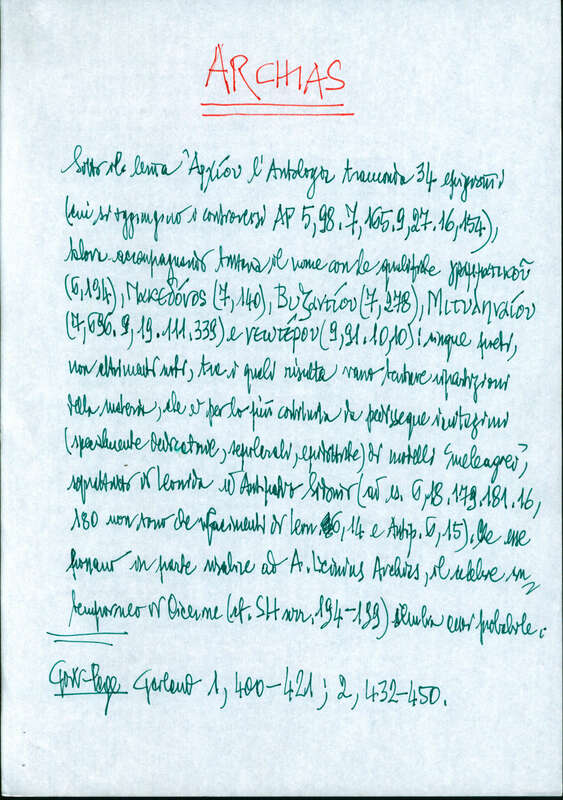 ARCHIAS
Sotto il lemma Ἀρχίου l'Antologia tramanda 34 epigrammi
(cui si aggiungono i controversi AP 5,98. 7,165. 9,27. 16,154),
talora accompagnando tuttavia il nome con le qualifiche γραμματικοῦ
(6,194), Μακεδόνος (7,140), Βυζαντίου (7,278), Μιτυληναίου
(7,696. 9,19. 111. 339) e νεωτέρου (9,91. 10,10): cinque poeti,
non altrimenti noti, tra i quali risulta vano tentare ripartizioni
della materia, che è per lo più costituita da pedisseque imitazioni
(specialmente dedicatorie, sepolcrali, epidittiche) di modelli "meleagrei",
soprattutto di Leonida ed Antipatro Sidonio (ad es. 6,18. 179. 181. 16,
180 non sono che rifacimenti di Leon. 6,14 e Antip. 6,15). Che esse
possano in parte risalire ad A. Licinius Archias, il celebre con-
temporaneo di Cicerone (cf. SH 194-199) sembra cosa probabile.
Gow-Page Garland 1, 400-421; 2, 432-450.